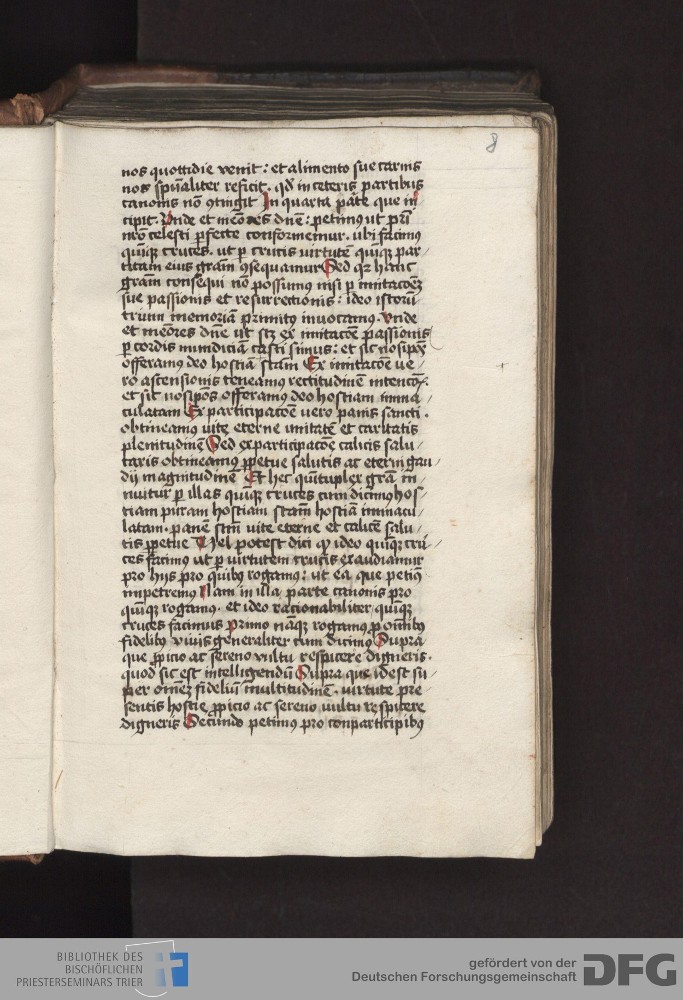 8
nos quottidie venit : et alimento sue carnis
nos sp̄ualiter reficit . qd̓ in ceteris partibus
canonis nō ꝯtingit In quarta pāte que in
cipit . Vnde et meōres dn̄e : petimꝰ ut pr̄i
nr̄o celesti ꝑfecte conformemur . ubi facimꝰ
quinqꝫ cruces . ut ꝑ crucis virtutē quinqꝫ par
titam eius grām ꝯsequamur Sed qꝛ hanc
grām consequi nō possumus nisi ꝑ imitacōeꝫ
sue passionis et resurrectionis : ideo istorū
trium memoriā primitꝰ invocamꝰ . Vnde
et meōres dn̄e ut scꝫ ex imitacōe passionis
ꝑ cordis mundiciā casti simus : et sic nosip̄os
offeramꝰ deo hostiā sc̄am Ex imitacōe ve
ro ascensionis teneamꝰ rectitudinē intencōis .
et sic nosip̄os offeramꝰ deo hostiam imma
culatam Ex participacōe vero panis sancti .
obtineamꝰ vite eterne unitatē et caritatis
plenitudinē Sed ex participacōe calicis salu
taris obtineamꝰ ꝑpetue salutis ac eterni gau
dij magnitudinē Et hec quintuplex grā in
nuitur ꝑ illas quinqꝫ cruces cum dicimꝰ hos
tiam puram hostiam sc̄am hostiā immacu
latam . panē sc̄m vite eterne et calicē salu
tis ꝑpetue Vel potest dici ꝙ ideo quinqꝫ cru
ces facimꝰ ut ꝑ virtutem crucis exaudiamur
pro hijs pro quibꝰ rogamꝰ : ut ea que petimꝰ
impetremꝰ Nam in illa parte canonis pro
quinqꝫ rogamꝰ . et ideo racionabiliter quinqꝫ
cruces facimus Primo nāqꝫ rogamꝰ ꝓ om̄ibꝰ
fidelibꝰ vivis generaliter cum dicimꝰ Supra
que ꝓpicio ac sereno vultu respicere digneris .
quod sic est intelligendū Supra que id est su
per om̄eꝫ fideliū multitudinē . virtute pre
sentis hostie ꝓpicio ac sereno vultu respicere
digneris Secundo petimꝰ pro conparticipibꝰ
BIBLIOTHEK DES
BISCHÖFLICHEN
PRIESTERSEMINARS TRIER
gefördert von der
Deutschen Forschungsgemeinschaft
DFG